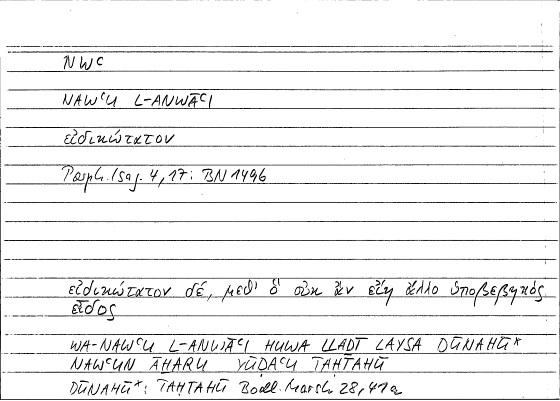 NWᶜ
NAWᶜU L-ANWĀᶜI
εἰδικώτατον
Porph. Isag. 4,17: BN 1496
εἰδικώτατον δέ, μεθ' ὃ οὐκ ἂν εἴη ἄλλο ὑποβεβηκὸς
εἶδος
WA-NAWᶜU L-ANWĀᶜI HUWA LLAḎĪ LAYSA DŪNAHŪ*
NAWᶜUN ĀḪARU YŪḌAᶜU TAḤTAHŪ
DŪNAHŪ*: TAḤTAHŪ Bodl. Marsh 28,41a